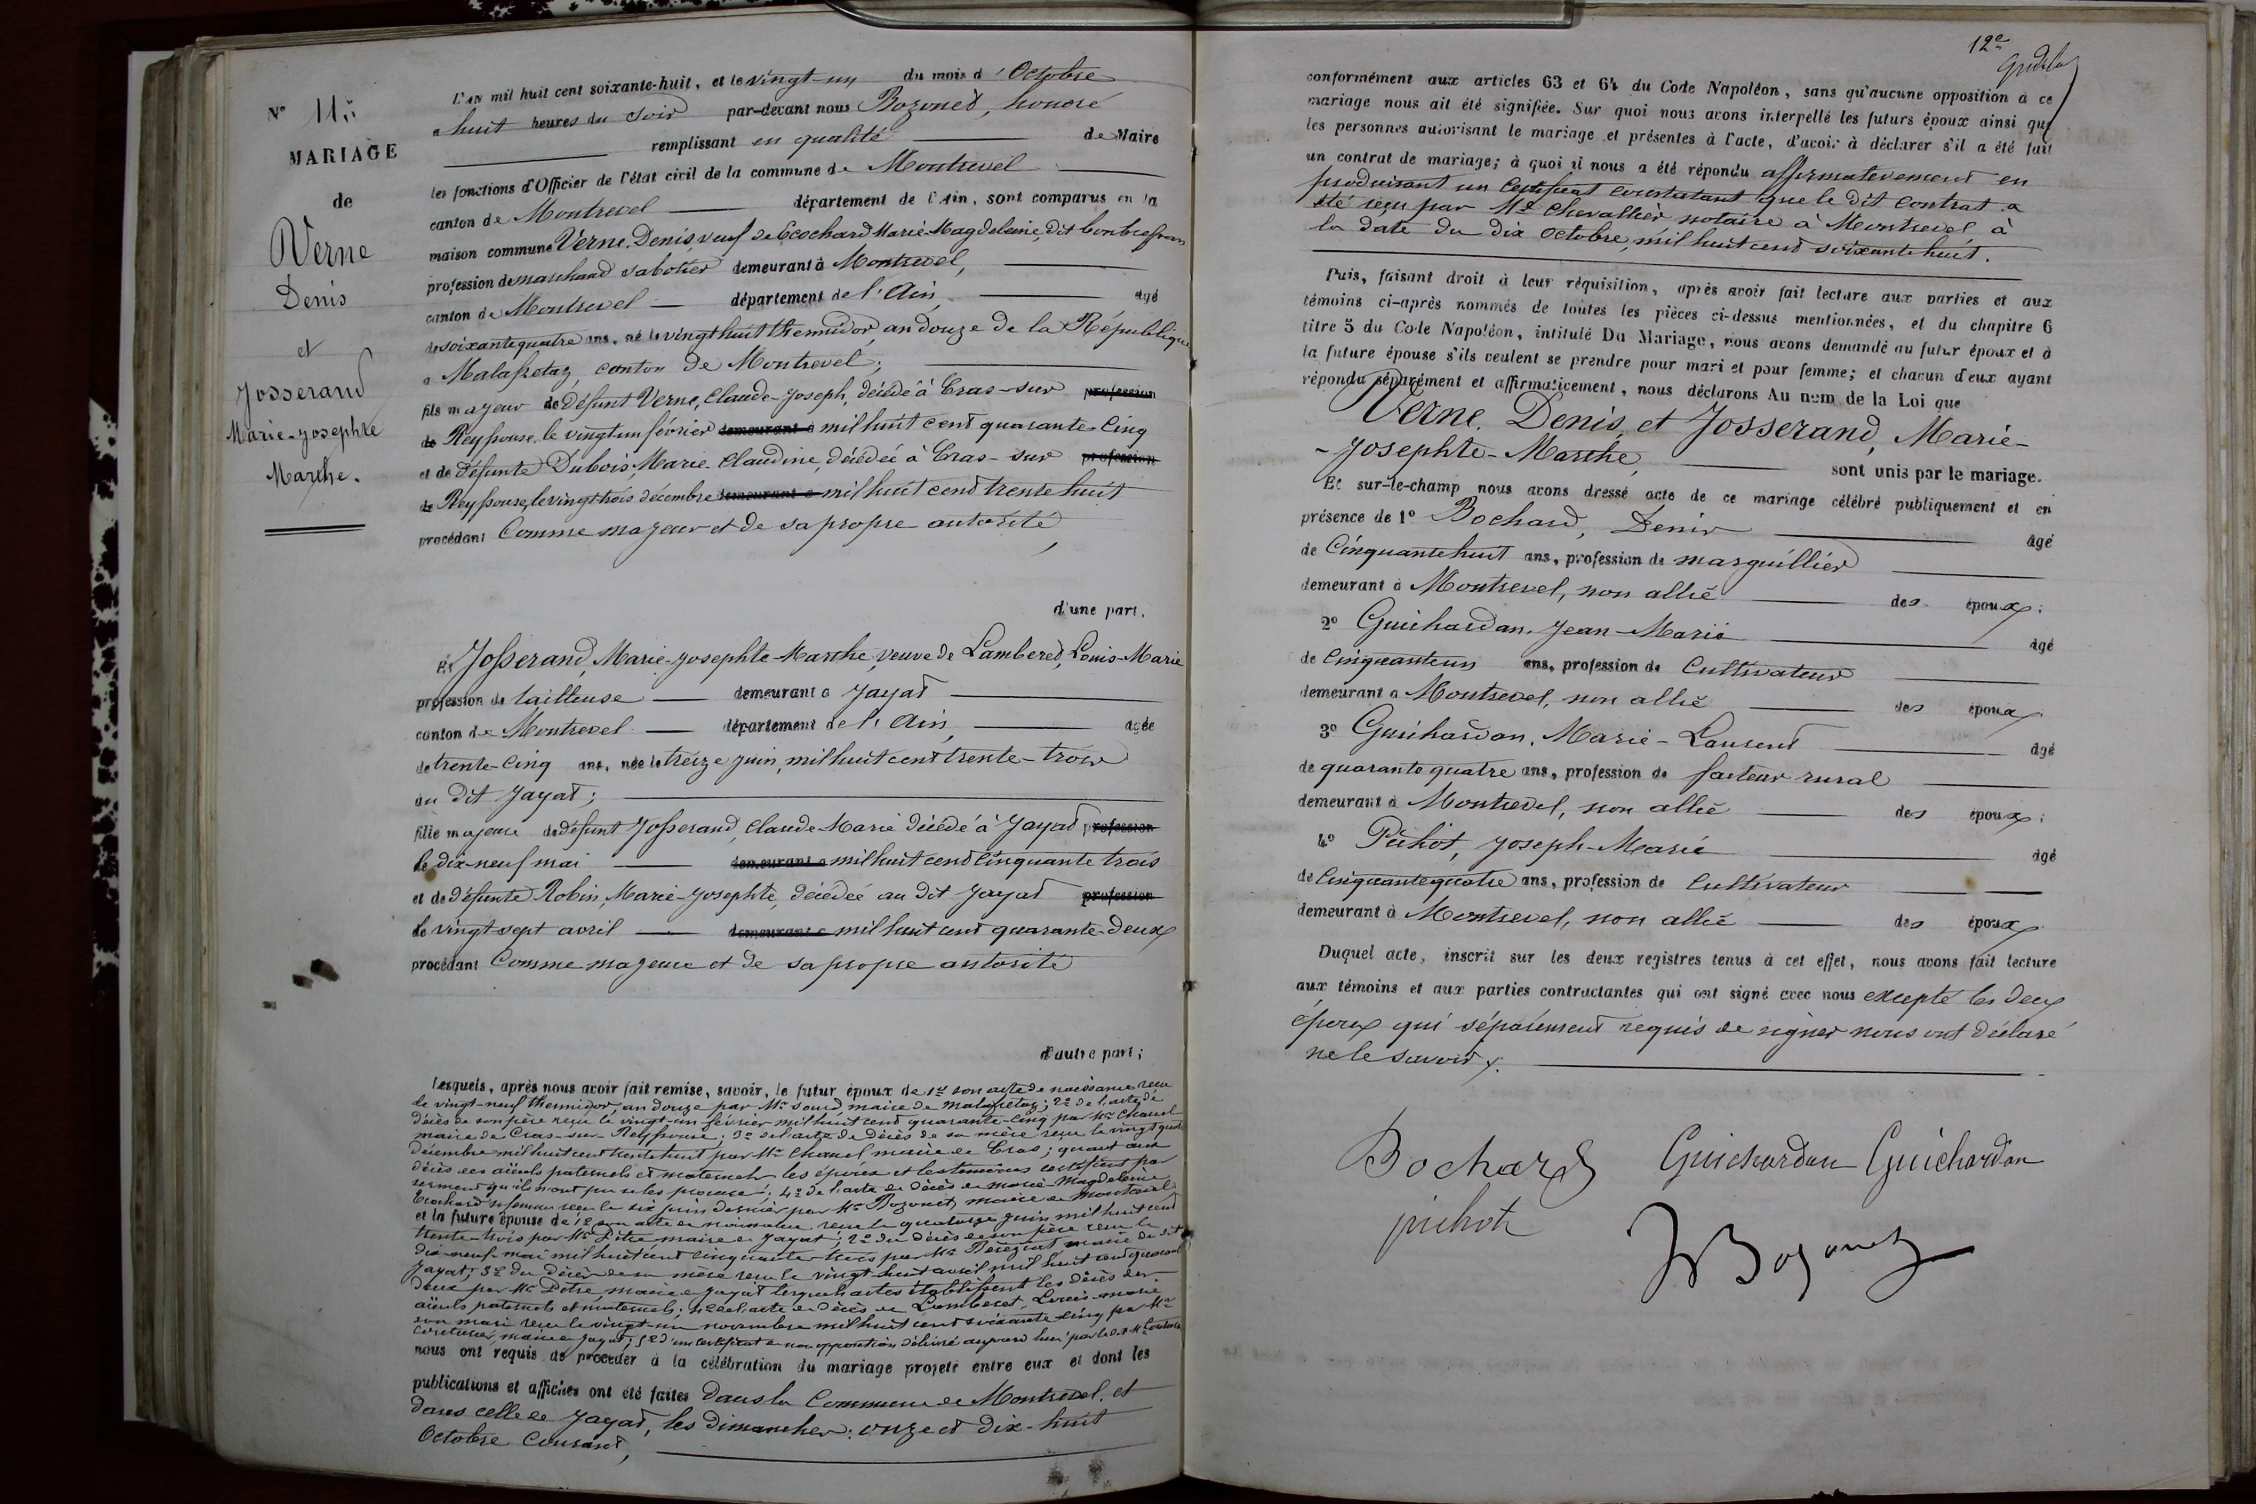 N° 11
MARIAGE
de
Verne
Denis
et
Josserand
Marie-Josephte
Marthe.
L'AN mil huit cent soixante-huit, et le vingt-un du mois d'Octobre
a huit heures du soir par-devant nous Bozonet, honoré
remplissant en qualité de Maire
les fonctions d'Officier de l'état civil de la commune de Montrevel
canton de Montrevel département de l'Ain, sont comparus en la
maison commune Verne, Denis, veuf de Ecochard Marie-Magdeleine, dit
profession de marchand sabotier demeurant à Montrevel,
canton de Montrevel département de l'Ain, agé
de soixante quatre ans, né le vingt huit thermidor, an douze de la République
a Malafretaz, canton de Montrevel;
fils majeur de défunt Verne, Claude-Joseph, décédé à Cras-sur profession
de Reyssouze, le vingt un février demeurant a mil huit cent quarante-cinq
et de défunte Dubois, Marie-Claudine, décédée à Cras-sur profession
de Reyssouze, le vingt trois décembre demeurant a mil huit cent trente huit
procédant Comme majeur et de sa propre autorité,
d'une part,
Et Josserand, Marie-Josephte-Marthe, veuve de Lamberet, Louis-Marie
profession de tailleuse demeurant a Jayat
canton de Montrevel département de l'Ain, agée
de trente-cinq ans, née le treize juin, mil huit cent trente-trois
au dit Jayat;
fille majeure de défunt Josserand, Claude Marie décédé à Jayat profession
le dix-neuf mai demeurant a mil huit cent cinquante trois
et de défunte Robin, Marie-Josephte, décédée au dit Jayat profession
le vingt-sept avril demeurant a mil huit cent quarante-deux
procédant Comme majeure et de sa propre autorité
d'autre part;
Lesquels, après nous avoir fait remise, savoir, le futur époux de 1° son acte de naissance reçu
le vingt-neuf thermidor, an douze par Mr maire de Malafretaz; 2° de l'acte de
décès de son père reçu le vingt-un février mil huit cent quarante-cinq par Mr Chanel
maire de Cras-sur-Reyssouze; 3° de l'acte de décès de sa mère reçu le vingt quatre
décembre mil huit cent trente huit par Mr Chanel maire de Cras; quant aux
décès des aïeuls paternels et maternels les époux et les témoins certifient par
serment qu'ils n'ont pu se les procurer; 4° de l'acte de décès de Marie-Magdeleine
Ecochard sa femme reçu le six juin dernier par Mr Bozonet, maire de Montrevel
et la future épouse de 1° son acte de naissance reçu le quatorze juin mil huit cent
trente-trois par Mr Pitre maire de Jayat; 2° du décès de son père reçu le
dix-neuf mai mil huit cent cinquante-trois par Mr maire du dit
Jayat; 3° du décès de sa mère reçu le vingt-huit avril mil huit cent quarante
deux par Mr Pitre, maire de Jayat lesquels actes établissent les décès des
aïeuls paternels et maternels; 4° de l'acte de décès de Lamberet, Louis-Marie
son mari reçu le vingt-un novembre mil huit cent soixante cinq par Mr
maire de Jayat; 5° d'un certificat de non opposition délivré aujourd'hui par le dit Mr
nous ont requis de procéder à la célébration du mariage projeté entre eux et dont les
publications et affiches ont été faites dans la Commune de Montrevel, et
dans celle de Jayat, les dimanches: onze et dix-huit
Octobre Courant,
12e
conformément aux articles 63 et 64 du Code Napoléon, sans qu'aucune opposition à ce
mariage nous ait été signifiée. Sur quoi nous avons interpellé les futurs époux ainsi que
les personnes autorisant le mariage et présentes à l'acte, d'avoir à déclarer s'il a été fait
un contrat de mariage; à quoi il nous a été répondu affirmativement en
produisant un certificat constatant que le dit contrat a
été reçu par Me Chevallier notaire à Montrevel à
la date du dix octobre, mil huit cent soixante huit.
Puis, faisant droit à leur réquisition, après avoir fait lecture aux parties et aux
témoins ci-après nommés de toutes les pièces ci-dessus mentionnées, et du chapitre 6
titre 5 du Code Napoléon, intitulé Du Mariage, nous avons demandé au futur époux et à
la future épouse s'ils veulent se prendre pour mari et pour femme; et chacun d'eux ayant
répondu séparément et affirmativement, nous déclarons Au nom de la Loi que
Verne, Denis, et Josserand, Marie-
-Josephte-Marthe, sont unis par le mariage.
Et sur-le-champ nous avons dressé acte de ce mariage célébré publiquement et en
présence de 1° Bochard, Denis âgé
de Cinquante huit ans, profession de marguillier
demeurant à Montrevel, non allié des époux;
2° Guichardan, Jean-Marie agé
de cinquante un ans, profession de Cultivateur
demeurant a Montrevel, non allié des époux
3° Guichardan, Marie-Laurent agé
de quarante quatre ans, profession de facteur rural
demeurant à Montrevel, non allié des époux;
4° Pichot, Joseph-Marie agé
de Cinquante quatre ans, profession de Cultivateur
demeurant à Montrevel, non allié des époux
Duquel acte, inscrit sur les deux registres tenus à cet effet, nous avons fait lecture
aux témoins et aux parties contractantes qui ont signé avec nous excepté les deux
époux qui séparément requis de signer nous ont déclaré
ne le savoir.
Bochard Guichardan Guichardan
pichot
Bozonet